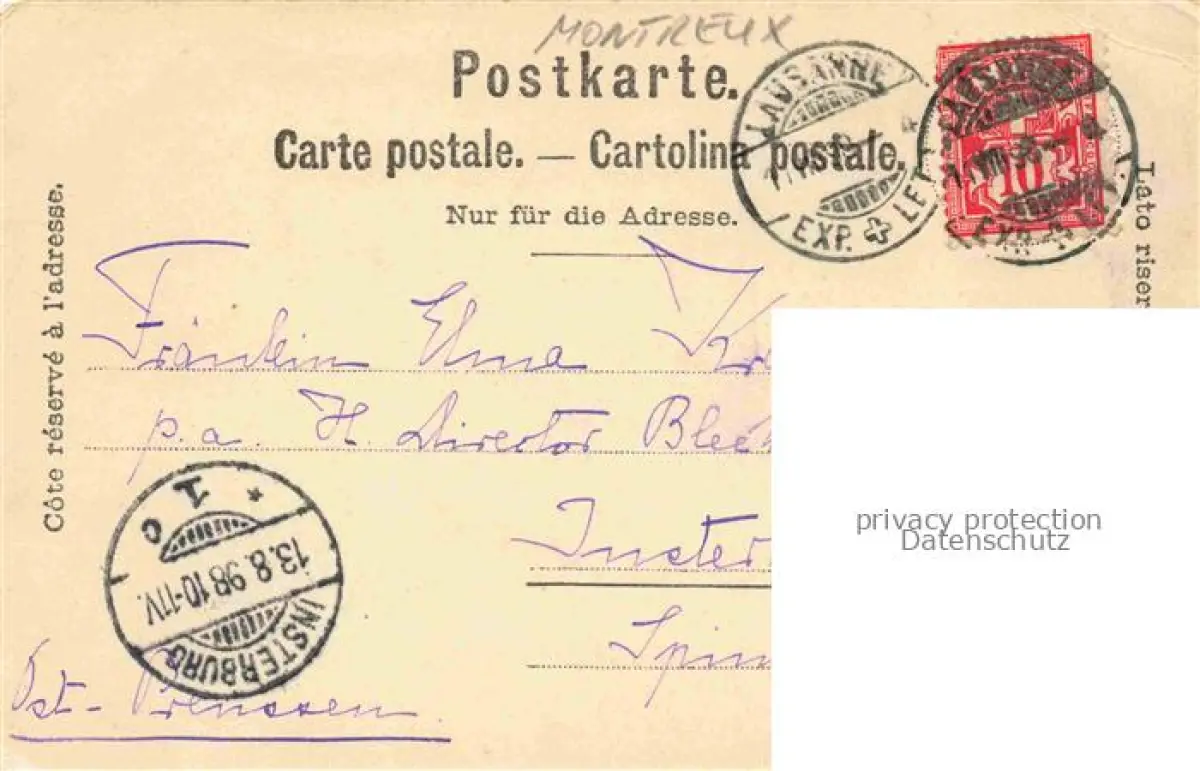 MONTREUX
Postkarte.
Carte postale. — Cartolina postale.
Nur für die Adresse.
LAUSANNE
EXP. LET
LAUSANNE
10
Côte réservé à l'adresse.
Lato riser
Fräulein Elma Kr
p.a. H. Director Blee
Inster
Ost-Preussen
1 c
13.8.98 10-11V.
INSTERBURG
privacy protection
Datenschutz